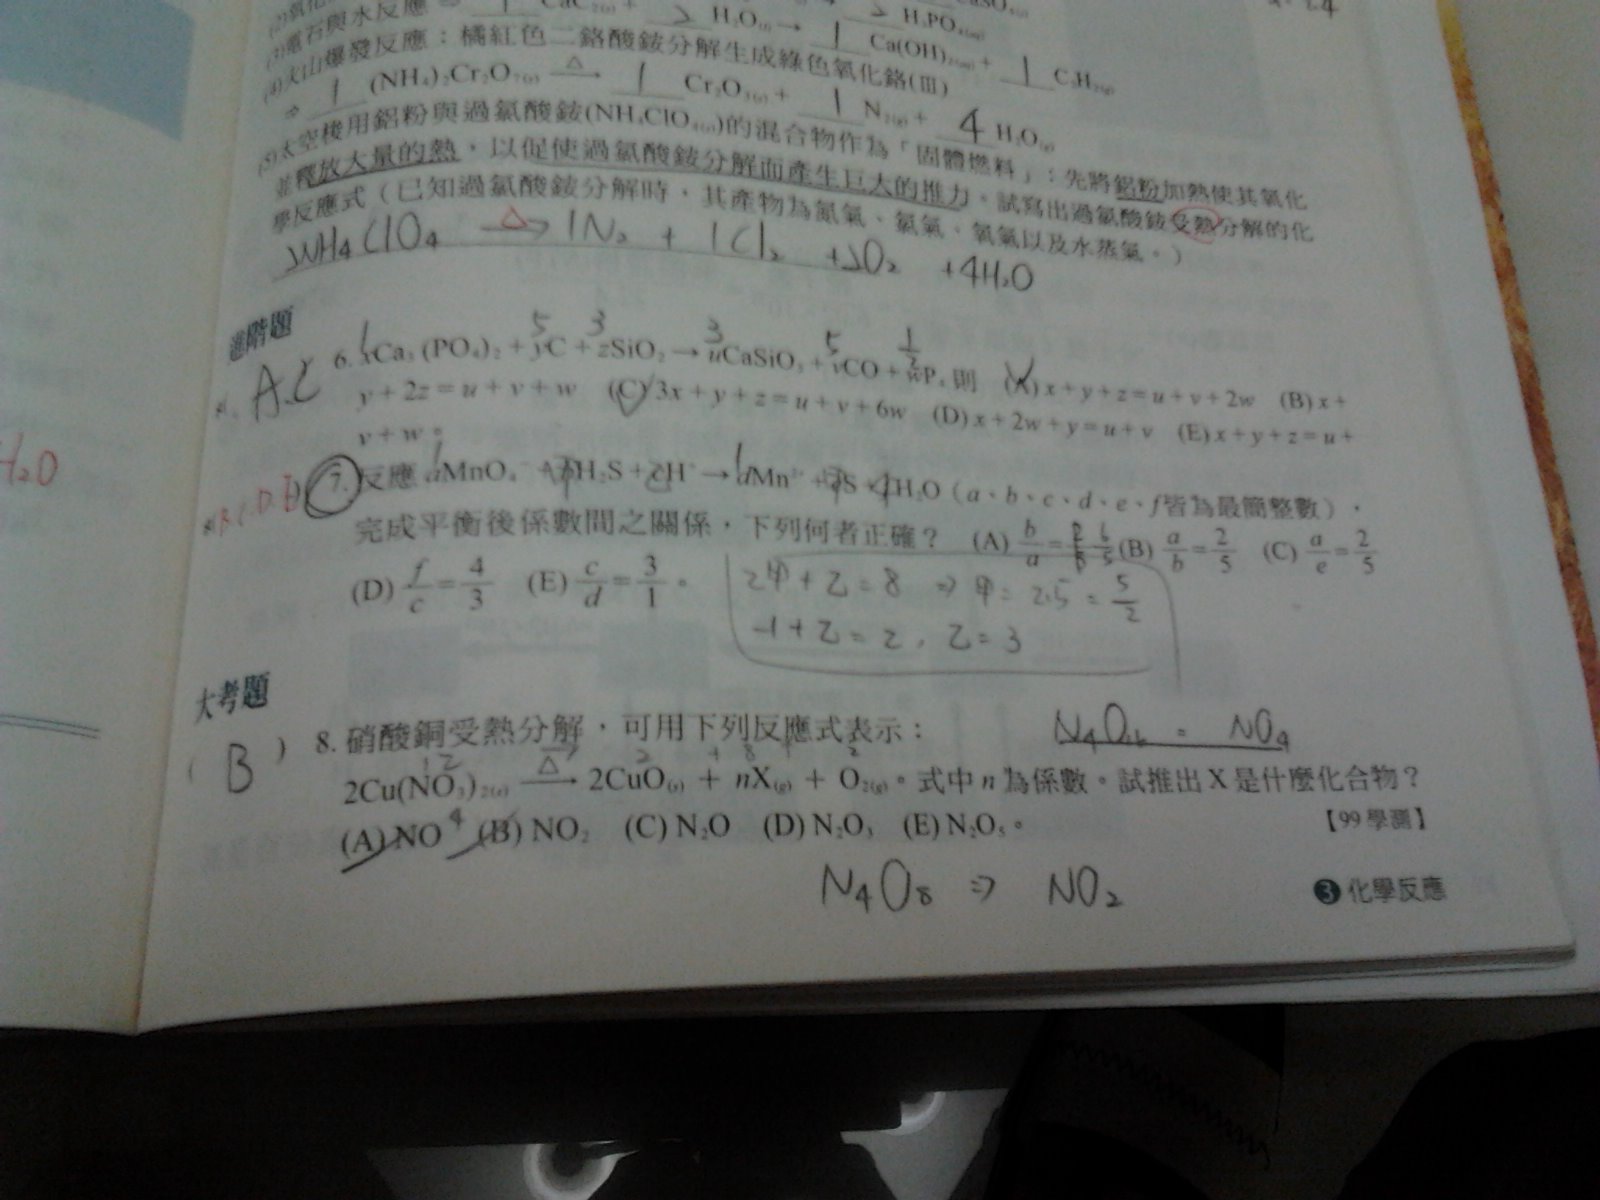 (3)電石與水反應 ⇒ 1 CaC₂₍ₛ₎ + 2 H₂O₍ₗ₎ → 1 Ca(OH)₂ + 1 C₂H₂
2 H₃PO₄
(4)火山爆發反應：橘紅色二鉻酸銨分解生成綠色氧化鉻(Ⅲ)
⇒ 1 (NH₄)₂Cr₂O₇₍ₛ₎ —△→ 1 Cr₂O₃₍ₛ₎ + 1 N₂₍g₎ + 4 H₂O₍g₎
(5)太空梭用鋁粉與過氯酸銨(NH₄ClO₄₍ₛ₎)的混合物作為「固體燃料」：先將鋁粉加熱使其氧化
並釋放大量的熱，以促使過氯酸銨分解而產生巨大的推力。試寫出過氯酸銨受熱分解的化
學反應式（已知過氯酸銨分解時，其產物為氮氣、氯氣、氧氣以及水蒸氣。）
2NH₄ClO₄ —△→ 1N₂ + 1Cl₂ + 2O₂ + 4H₂O
進階題
A.C 6. xCa₃(PO₄)₂ + yC + zSiO₂ → uCaSiO₃ + vCO + wP₄ 則 (A) x + y + z = u + v + 2w (B) x +
1 5 3 3 5 1/2
y + 2z = u + v + w (C) 3x + y + z = u + v + 6w (D) x + 2w + y = u + v (E) x + y + z = u +
v + w。
H₂O
B.C.D.E 7. 反應 aMnO₄⁻ + bH₂S + cH⁺ → dMn²⁺ + eS + fH₂O（a、b、c、d、e、f 皆為最簡整數），
完成平衡後係數間之關係，下列何者正確？ (A) b/a = 6/5 (B) a/b = 2/5 (C) a/e = 2/5
(D) f/c = 4/3 (E) c/d = 3/1。
2甲 + Z = 8 ⇒ 甲 = 2.5 = 5/2
-1 + Z = 2, Z = 3
大考題
( B ) 8. 硝酸銅受熱分解，可用下列反應式表示：
N₄O₁₆ = NO₄
2Cu(NO₃)₂₍ₛ₎ —△→ 2CuO₍ₛ₎ + nX₍g₎ + O₂₍g₎。式中 n 為係數。試推出 X 是什麼化合物？
(A) NO (B) NO₂ (C) N₂O (D) N₂O₃ (E) N₂O₅。 【99 學測】
N₄O₈ ⇒ NO₂
3 化學反應